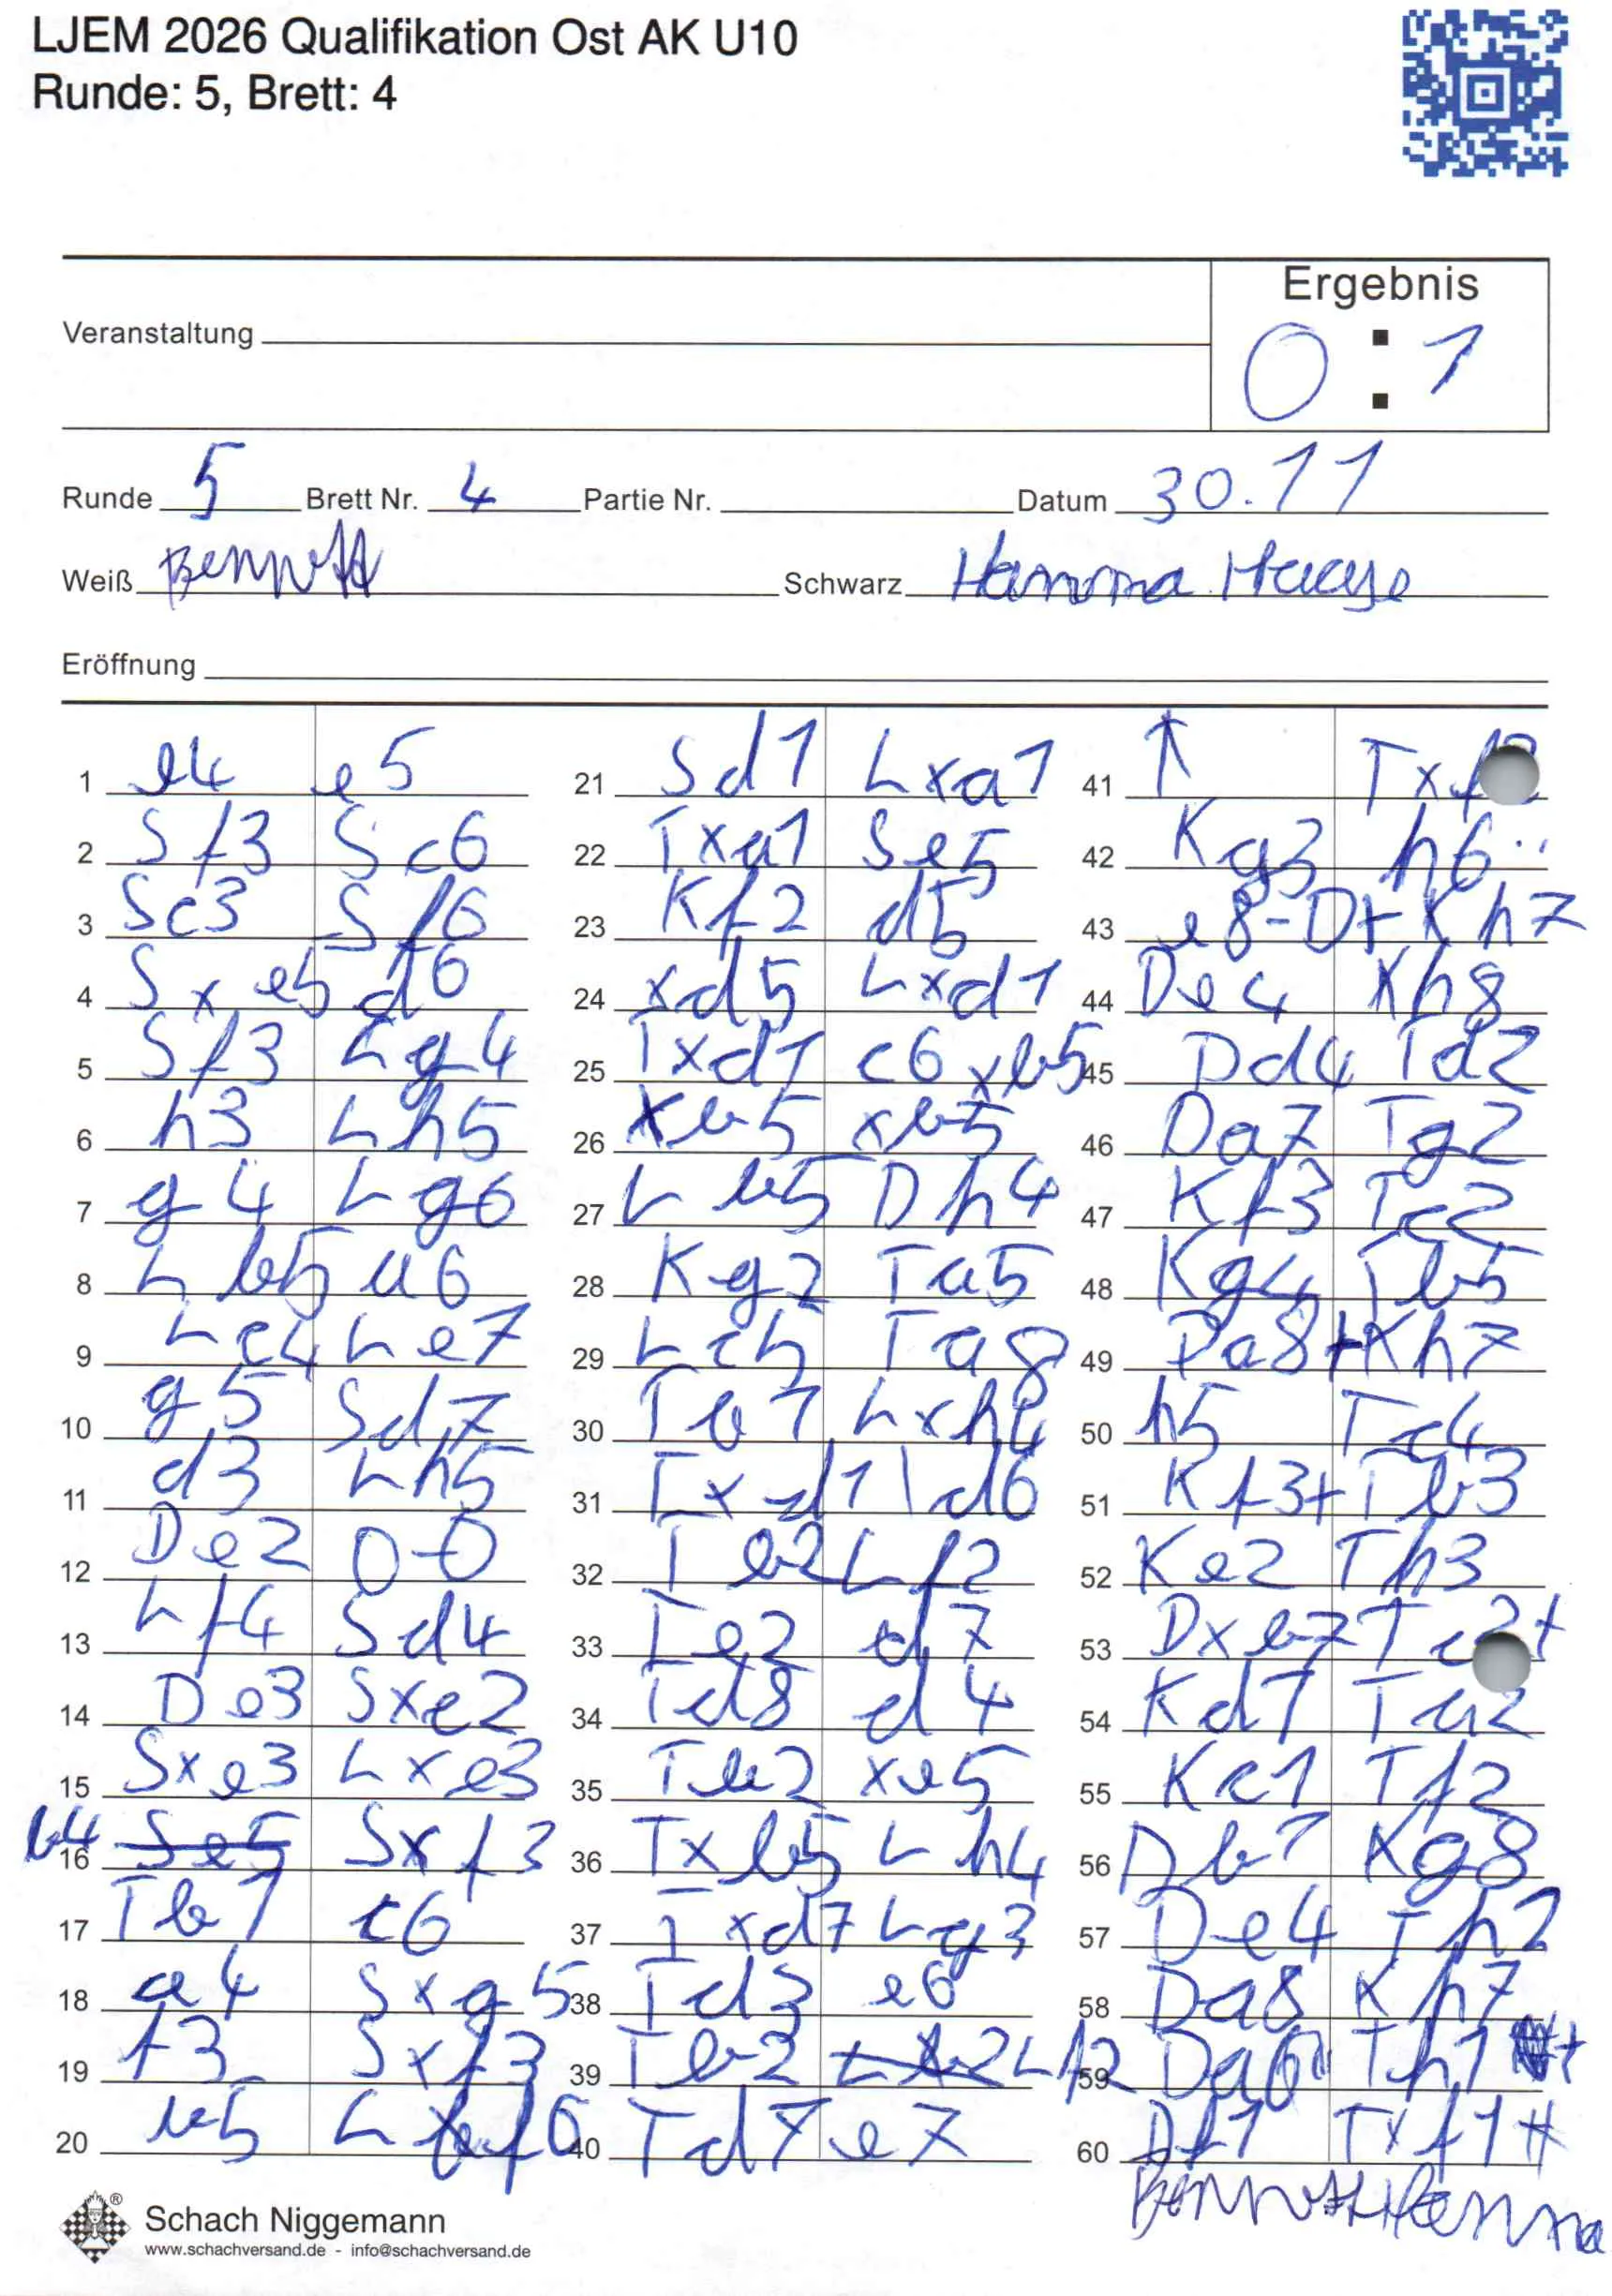 LJEM 2026 Qualifikation Ost AK U10
Runde: 5, Brett: 4
Ergebnis
Veranstaltung
0 : 1
Runde 5 Brett Nr. 4 Partie Nr. Datum 30.11
Weiß Bennett Schwarz Hanna Haase
Eröffnung
1 e4 e5
2 Sf3 Sc6
3 Sc3 Sf6
4 Sxe5 d6
5 Sf3 Lg4
6 h3 Lh5
7 g4 Lg6
8 Lb5 a6
9 Lc4 Le7
10 g5 Sd7
11 d3 Lh5
12 De2 0-0
13 Lf4 Sd4
14 De3 Sxe2
15 Sxe3 Lxe3
16 b4 Se5 Sxf3
17 Tb1 c6
18 a4 Sxg5
19 f3 Sxf3
20 b5 Lf6
21 Sd1 Lxa1
22 Txa1 Se5
23 Kf2 d5
24 xd5 Lxd1
25 Txd1 c6 xb5
26 xb5 xb5
27 Lb5 Dh4
28 Kg2 Ta5
29 Lc5 Ta8
30 Tb1 Lxh4
31 Txd1 d6
32 Tb2 Lf2
33 Te2 d7
34 Td8 d4
35 Tb2 xe5
36 Txb5 Lh4
37 Txd7 Lg3
38 Td3 e6
39 Tb2 Lf2
40 Td7 e7
41 ↑ Txf2
42 Kg3 h6
43 e8-D+ Kh7
44 De4 Kh8
45 Dd4 Td2
46 Da7 Tg2
47 Kf3 Tc2
48 Kg4 Tb5
49 Da8+ Kh7
50 h5 Tc4
51 Kf3+ Tb3
52 Ke2 Th3
53 Dxb7 Tc2+
54 Kd1 Ta2
55 Kc1 Tf2
56 Db1 Kg8
57 De4 Th2
58 Da8 Kh7
59 Da6 Th1+
60 Df1 Txf1#
Bennett Hanna
Schach Niggemann
www.schachversand.de - info@schachversand.de